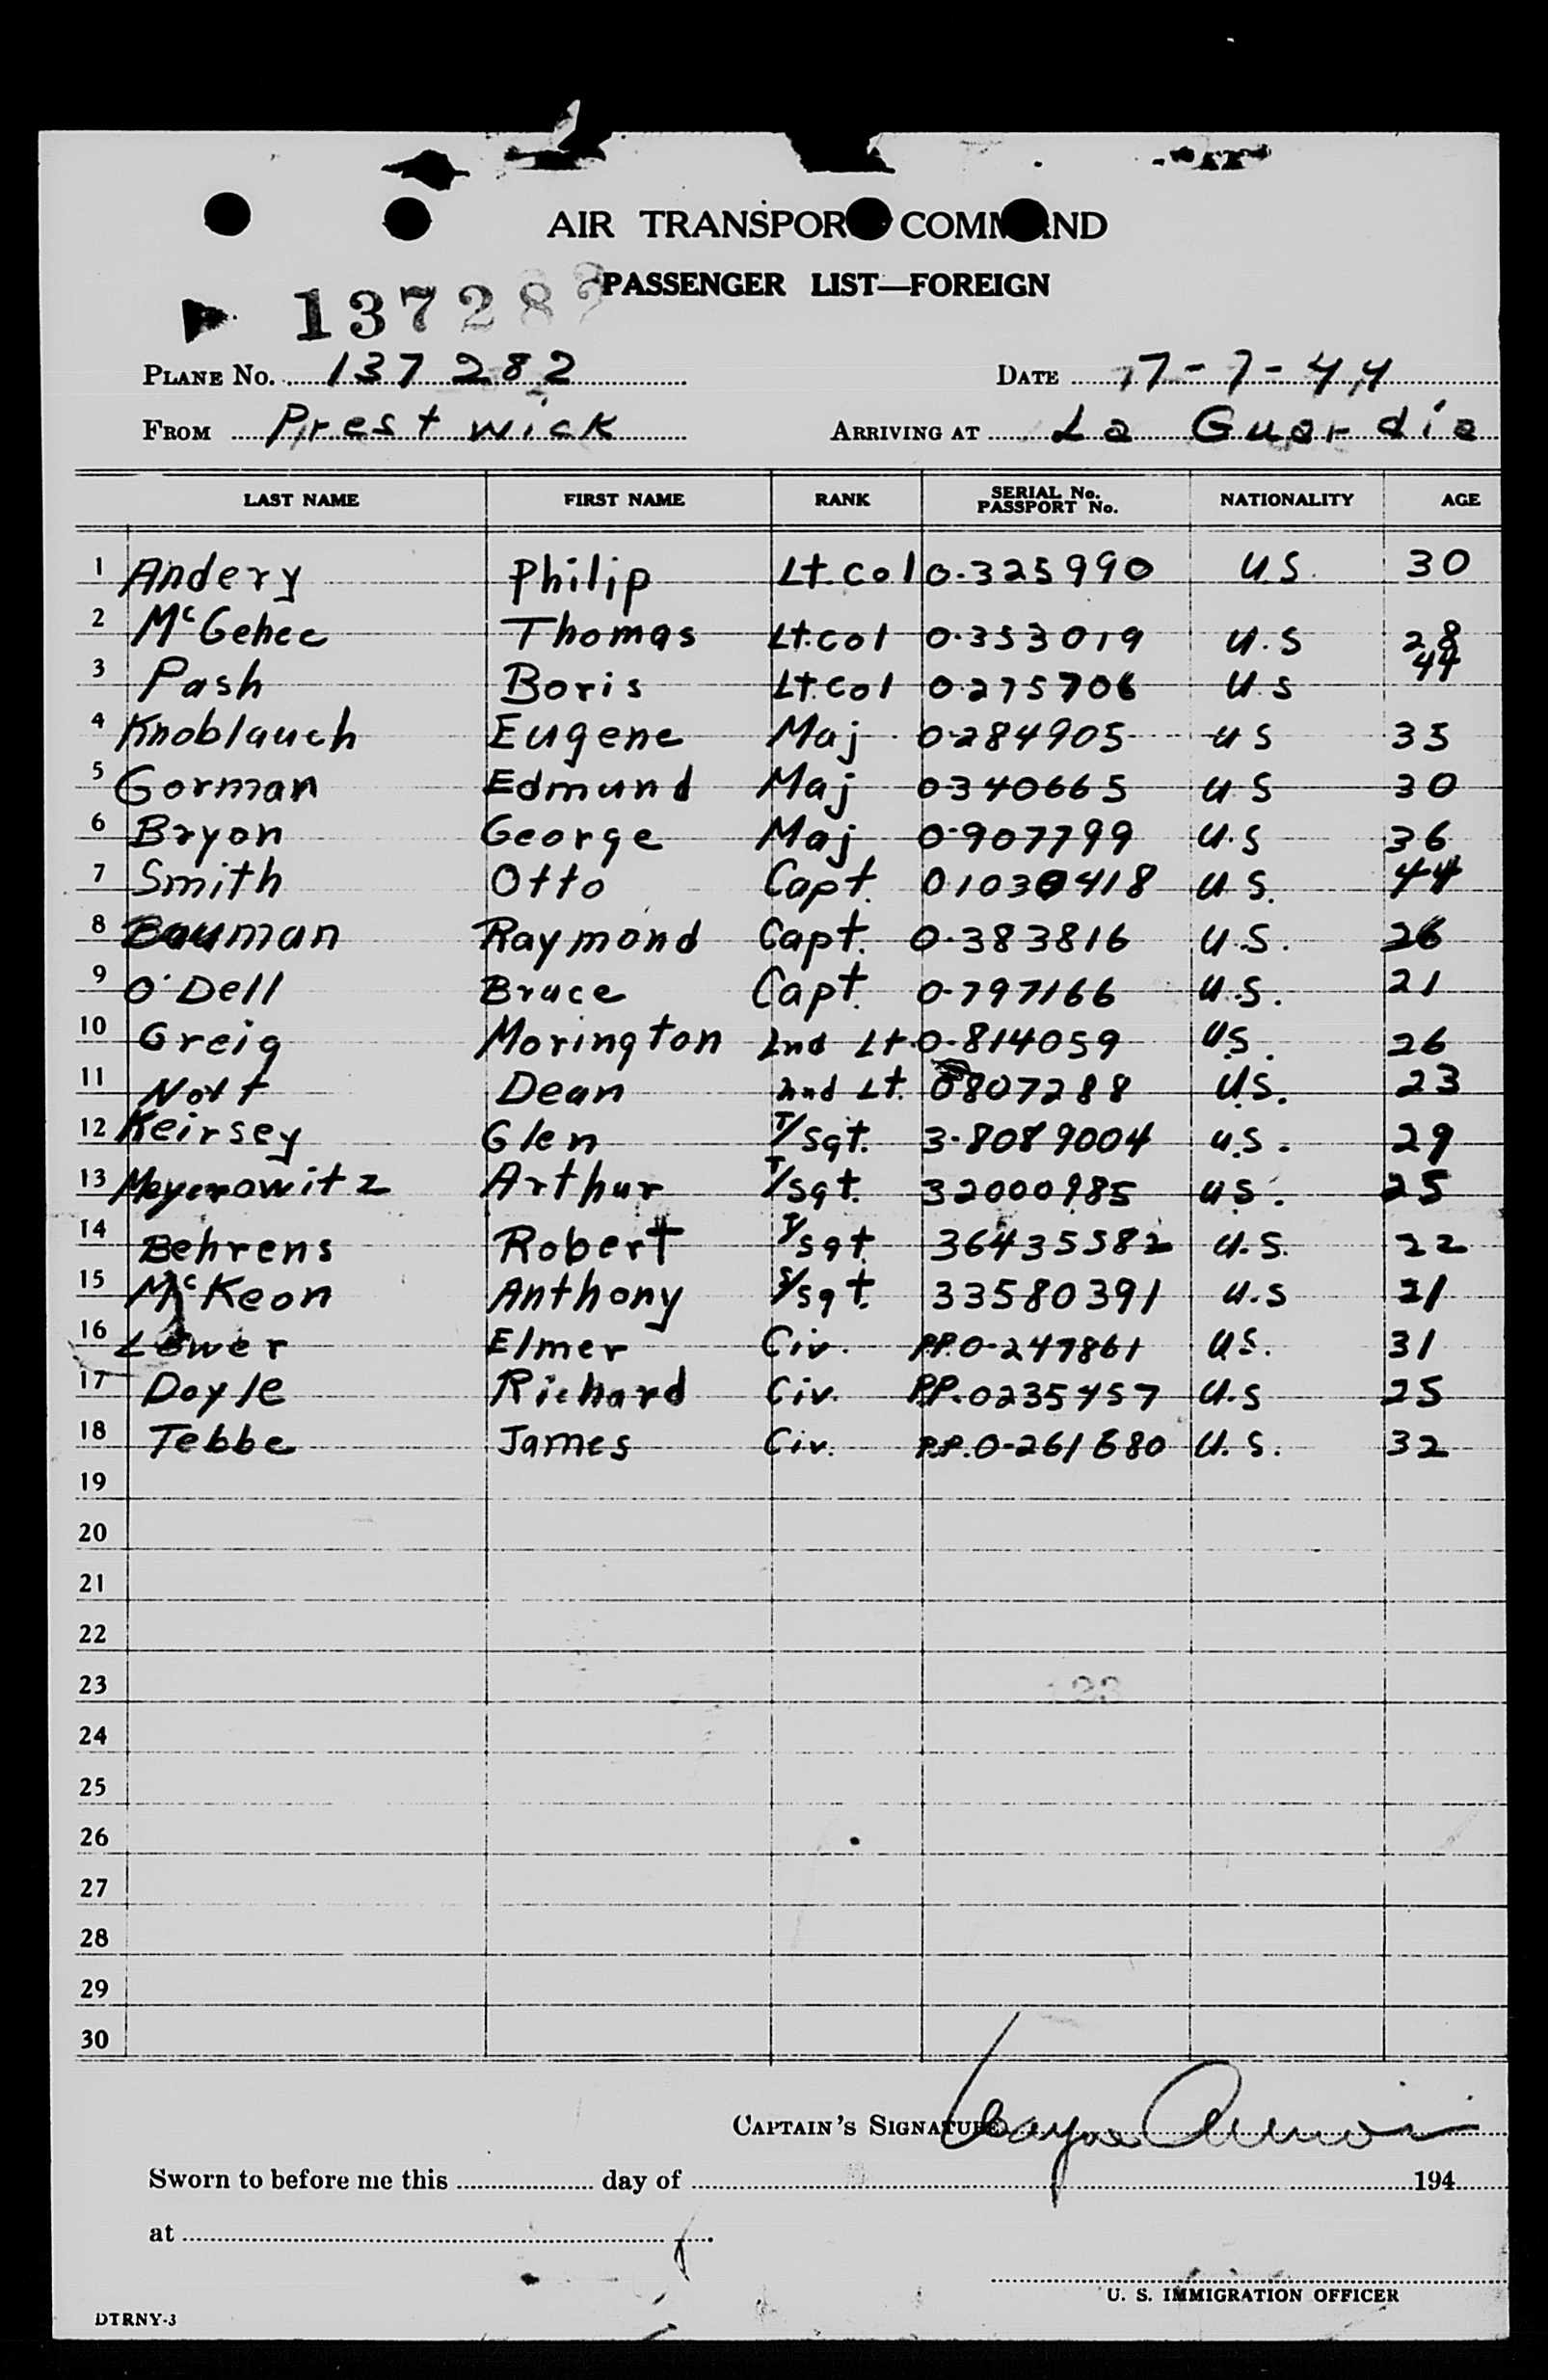 AIR TRANSPORT COMMAND
PASSENGER LIST—FOREIGN
137282
PLANE No. 137282 DATE 17-7-44
FROM Prestwick ARRIVING AT La Guardia
LAST NAME FIRST NAME RANK SERIAL No. PASSPORT No. NATIONALITY AGE
1 Andery Philip Lt.Col 0-325990 U.S. 30
2 McGehee Thomas Lt.Col 0-353019 U.S 28
3 Pash Boris Lt.Col 0-275706 U.S 44
4 Knoblauch Eugene Maj. 0-284905 US 35
5 Gorman Edmund Maj 0340665 U.S 30
6 Bryon George Maj 0-907799 U.S 36
7 Smith Otto Capt. 01030418 U.S. 44
8 Bauman Raymond Capt. 0-383816 U.S. 26
9 O'Dell Bruce Capt. 0-797166 U.S. 21
10 Greig Morington 2nd Lt. 0-814059 U.S. 26
11 Nott Dean 2nd Lt. 0807288 U.S. 23
12 Keirsey Glen T/Sgt. 3-8089004 U.S. 29
13 Meyerowitz Arthur T/Sgt. 32000985 U.S. 25
14 Behrens Robert T/Sgt. 36435582 U.S. 22
15 McKeon Anthony S/Sgt. 33580391 U.S 21
16 Lower Elmer Civ. P.P.0-247861 U.S. 31
17 Doyle Richard Civ. P.P.0235457 U.S 25
18 Tebbe James Civ. P.P.0-261680 U.S. 32
19
20
21
22
23
24
25
26
27
28
29
30
CAPTAIN'S SIGNATURE
Sworn to before me this day of 194
at
U. S. IMMIGRATION OFFICER
DTRNY-3